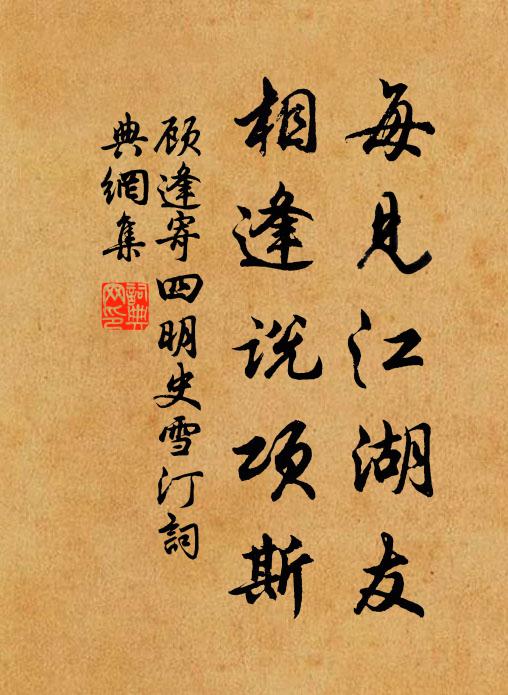 每见江湖友
相逢说项斯
顾逢寄四明史雪汀词
典網集
詞典
网印